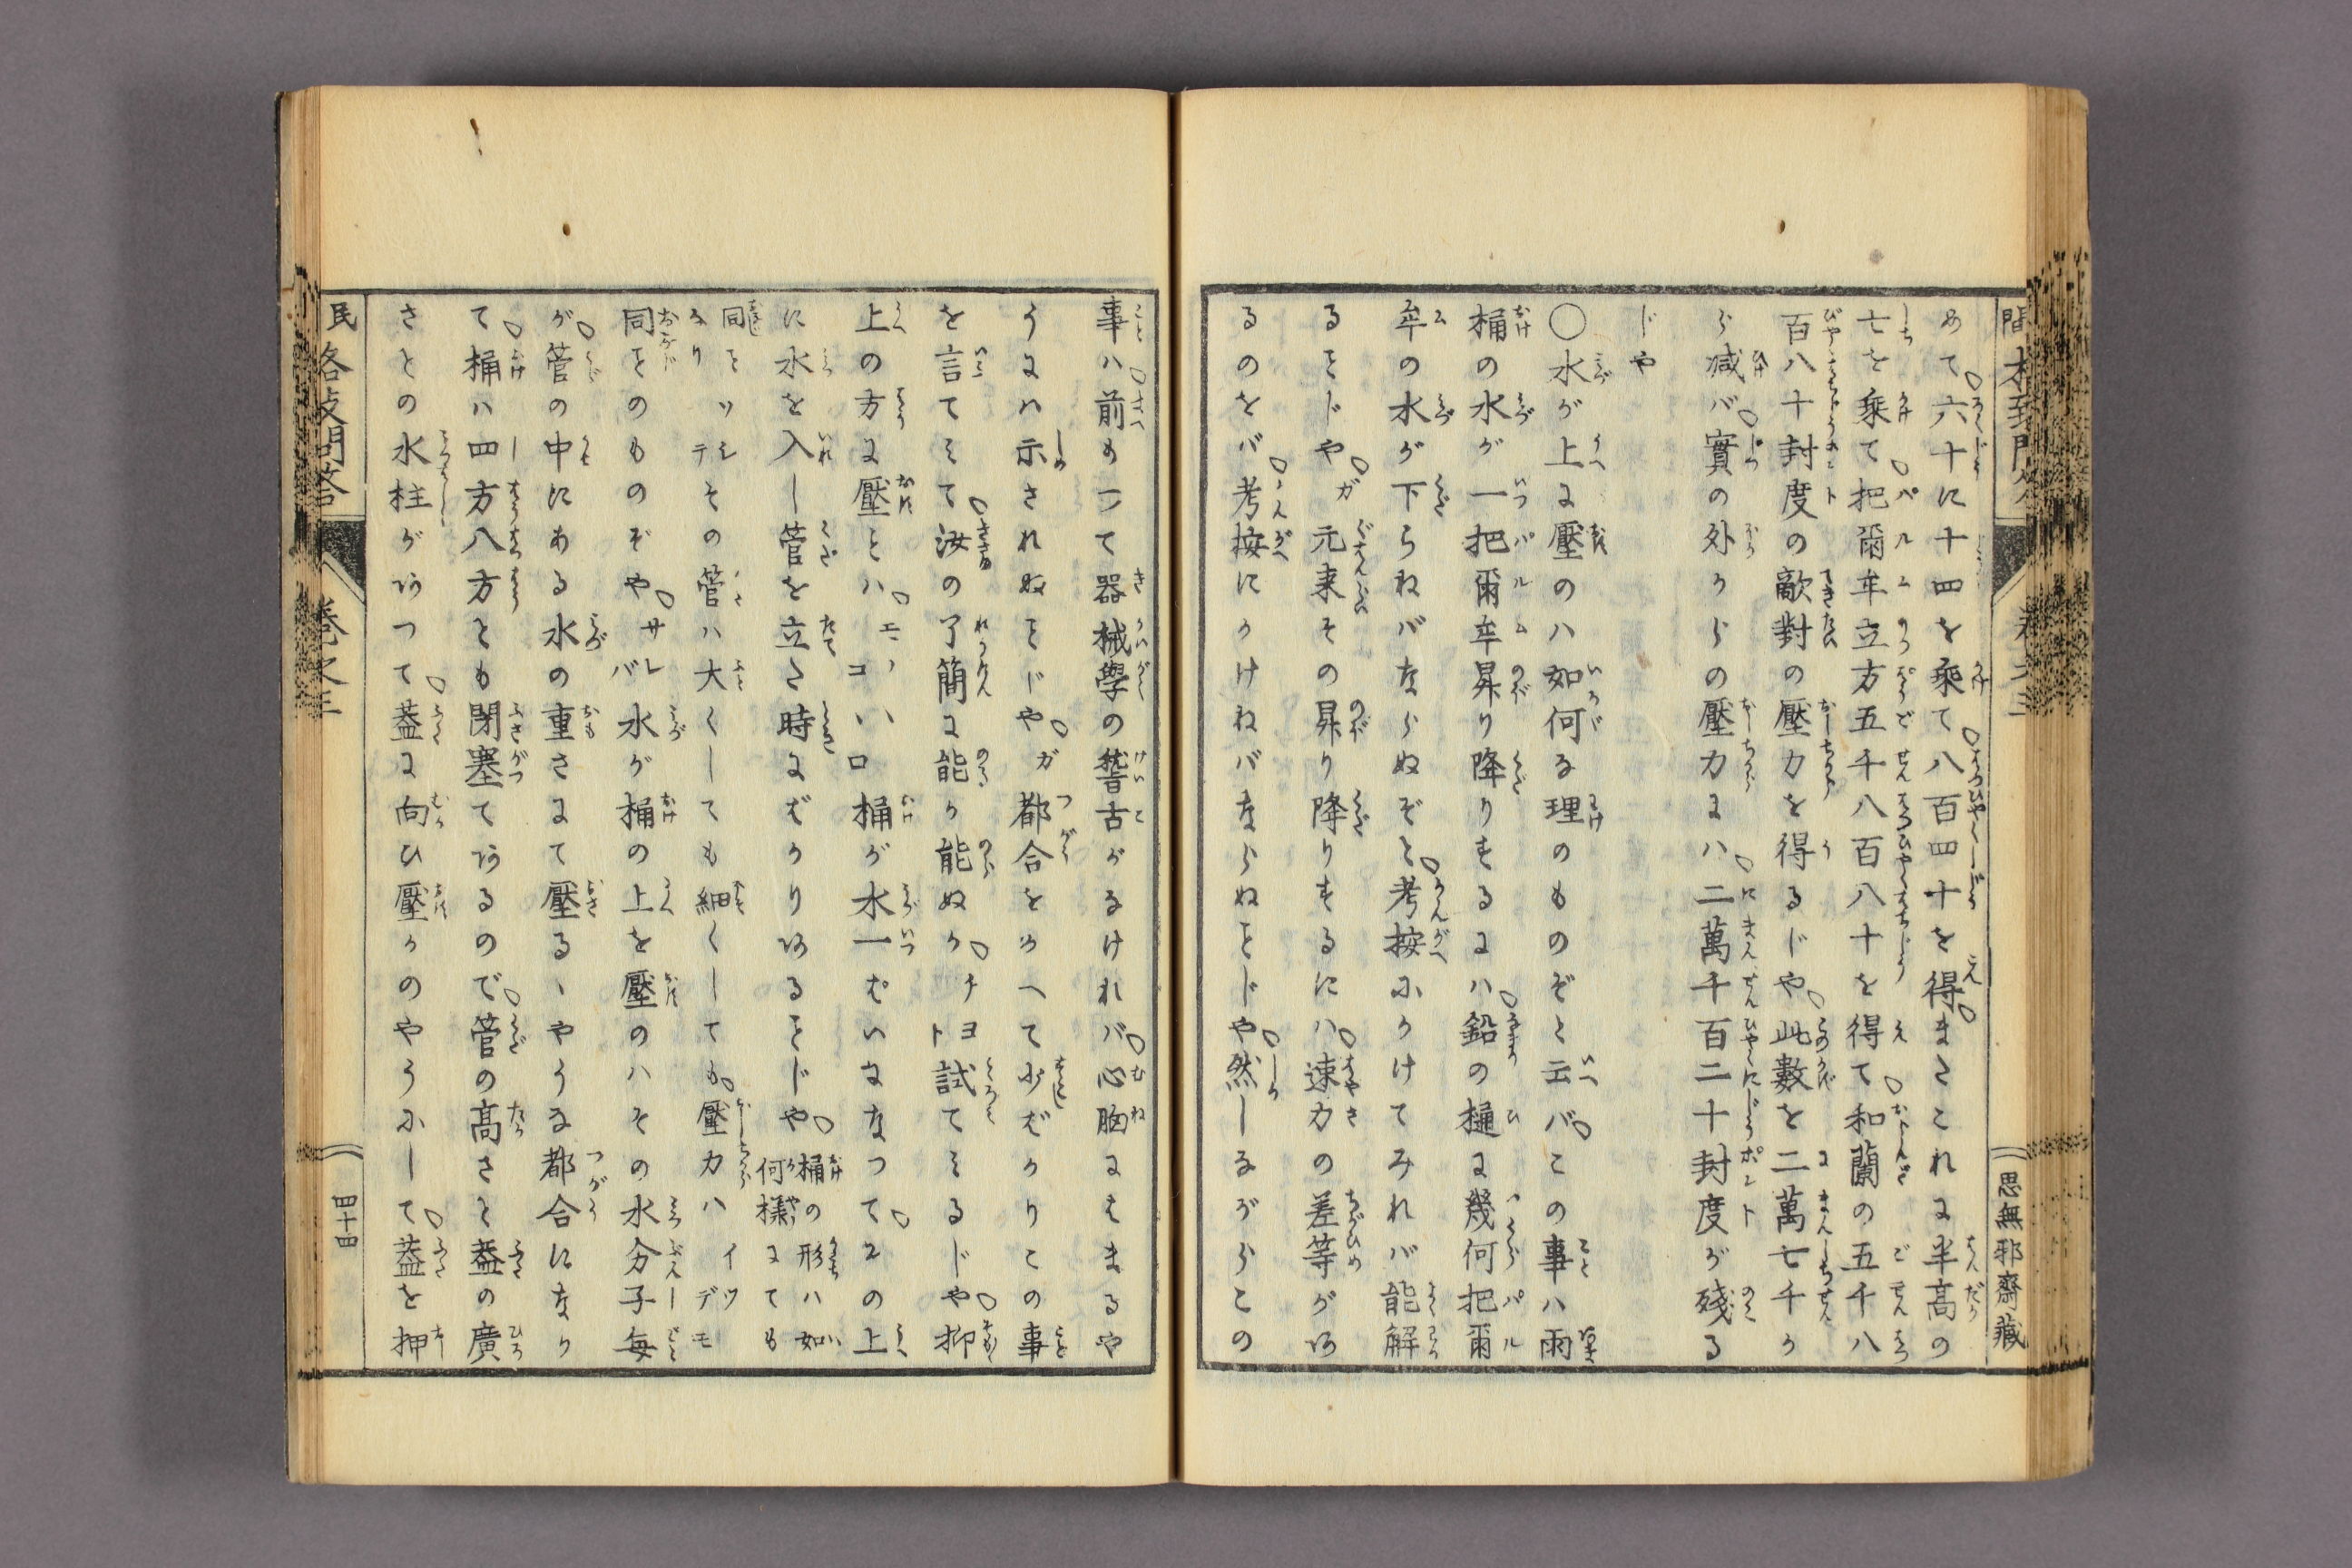 めて六十に十四を乘て八百四十を得まさこれに半高の
七を乘て把爾牟立方五千八百八十を得て和蘭の五千八
百八十封度の敵對の壓力を得るじや此數を二萬七千か
ら減バ實の外からの壓力にハ二萬千百二十封度が殘る
じや
〇水が上に壓のハ如何る理のものぞと云バこの事ハ雨
桶の水が一把爾牟昇り降りするにハ鉛の樋に幾何把爾
牟の水が下らねバならぬぞと考按にかけてみれバ能解
るこじやガ元来その昇り降りするにハ速力の差等があ
るのをバ考按にかけねバならぬこじや然しながらこの
思無邪齋藏
事ハ前もつて器械學の誓古がなけれバ心胸にはまるや
うにハ示されぬこじやガ都合をかへて少ばかりこの事
を言てみて汝の了簡に能か能ぬかチヨト試てみるじや抑
上の方に壓とハエヽコいロ桶が水一ぱいになつてその上
に水を入し管を立た時にばかりあるこじや桶の形ハ如何樣にても
同ことなりツシテその管ハ大くしても細くしても壓力ハイツデモ
同このものぞやサレバ水が桶の上を壓のハその水分子毎
が管の中にある水の重さにて壓るヽやうな都合になり
て桶ハ四方八方とも閉塞てあるので管の高さと葢の廣
さとの水柱があつて葢に向ひ壓かのやうにして葢を押
民
各致問答
卷之三
四十四